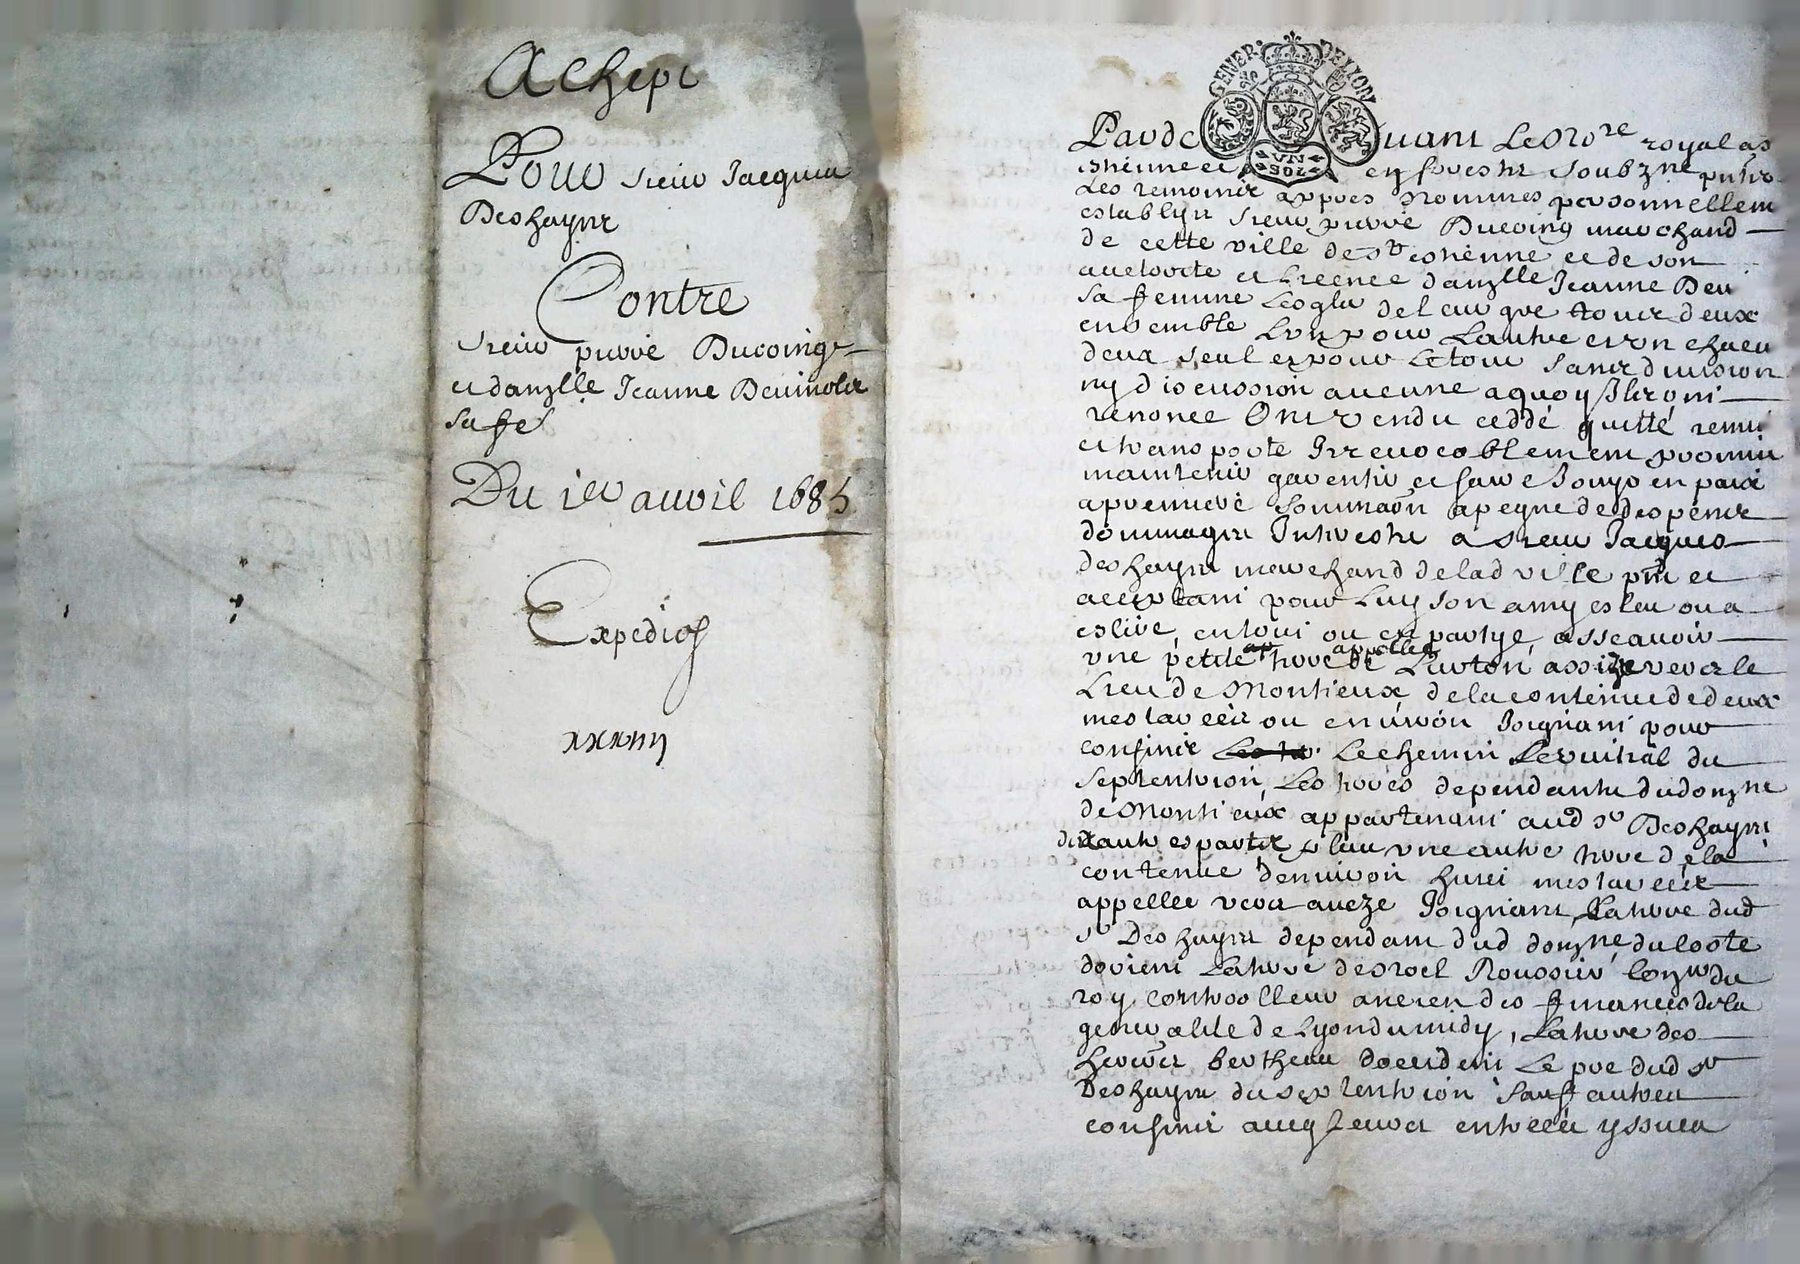 Achept
Pour sieur Jacques
Deshayes
Contre
sieur pierre Ducoing
et damlle Jeanne Devinols
sa fe
Du 1er avvril 1685
Expedié
xxxiiij
GENER. DE LYON
VN SOL
Pardevant Le No.re royal a st
estienne et en forestz soubzne p
Les temoins appres Nommes personnellem
establys sieur pierre Ducoing marchand
de cette ville de st estienne et de son
autorite et Licence damlle Jeanne Dev
sa femme Lesqls de leur gre tous deux
ensemble Lun pour Lautre et un chacu
deux seul et pour Le tout sans division
ny discussion aucune a quoy Ils ont
renoncé Ont vendu ceddé quitté remis
et transporte Irrevocablement promis
maintenir garentir et faire Jouyr en paix
a premiere sommaon a peyne de despens
dommages Intherestz a sieur Jacques
deshayes marchand de lad ville pnt et
acceptant pour Luy son amy esleu ou a
eslire, en tout ou en partye, asseavoir
une petite terre appellee Liurton, assize vers le
Lieu de Montieux de la contenue de deux
mestarees ou environ Joignant pour
confins Le chemin du
septentrion, Les terres dependants du domne
de Montieux appartenant aud sr Deshayes
dautres partz plus une autre terre de la
contenue denviron huict mestarees
appellee vers aveze Joignant, La terre dud
sr Deshayes dependant dud domne du coste
dorient La terre de Noel Roussier conser du
roy controolleur ancien des finances de la
generalité de Lyon du midy, La terre des
heritiers Bertheau doccident Le pre dud sr
Deshayes du septentrion sauf autres
confins avecq Leurs entrées yssues